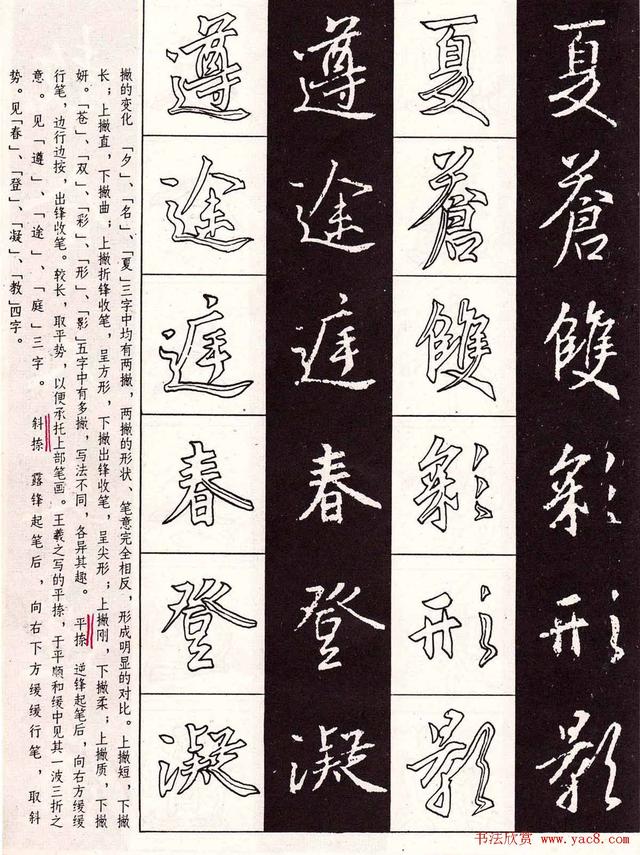 夏蒼雙彩形影
夏蒼雙彩形影
遵途庭春登凝
遵途庭春登凝
撇的变化　「夕」、「名」、「夏」三字中均有两撇，两撇的形状、笔意完全相反，形成明显的对比。上撇短，下撇
长；上撇直，下撇曲；上撇折锋收笔，呈方形，下撇出锋收笔，呈尖形；上撇刚，下撇柔；上撇质，下撇
妍。「苍」、「双」、「彩」、「形」、「影」五字中有多撇，写法不同，各异其趣。　平捺　逆锋起笔后，向右方缓缓
行笔，边行边按，出锋收笔。较长，取平势，以便承托上部笔画。王羲之写的平捺，于平顺和缓中见其一波三折之
意。见「遵」、「途」、「庭」三字。　斜捺　露锋起笔后，向右下方缓缓行笔，取斜
势。见「春」、「登」、「凝」、「教」四字。
书法欣赏
www.yac8.com